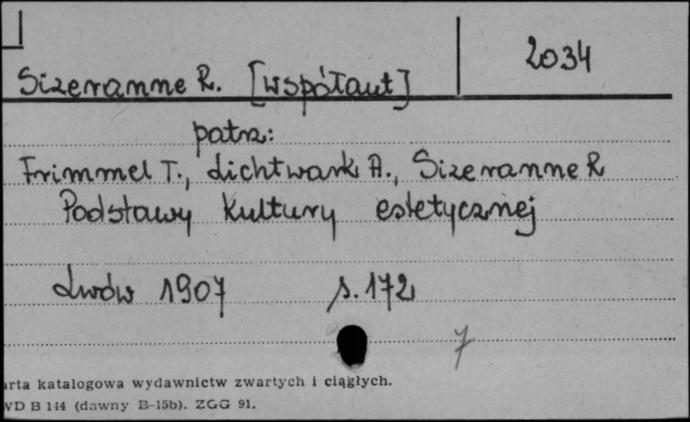 Sizeranne R. [współaut]
2034
patrz:
Frimmel T., Lichtwark A., Sizeranne R
Podstawy kultury estetycznej
Lwów 1907 s. 172
7
arta katalogowa wydawnictw zwartych i ciągłych.
WD B 144 (dawny B-15b). ZGG 91.